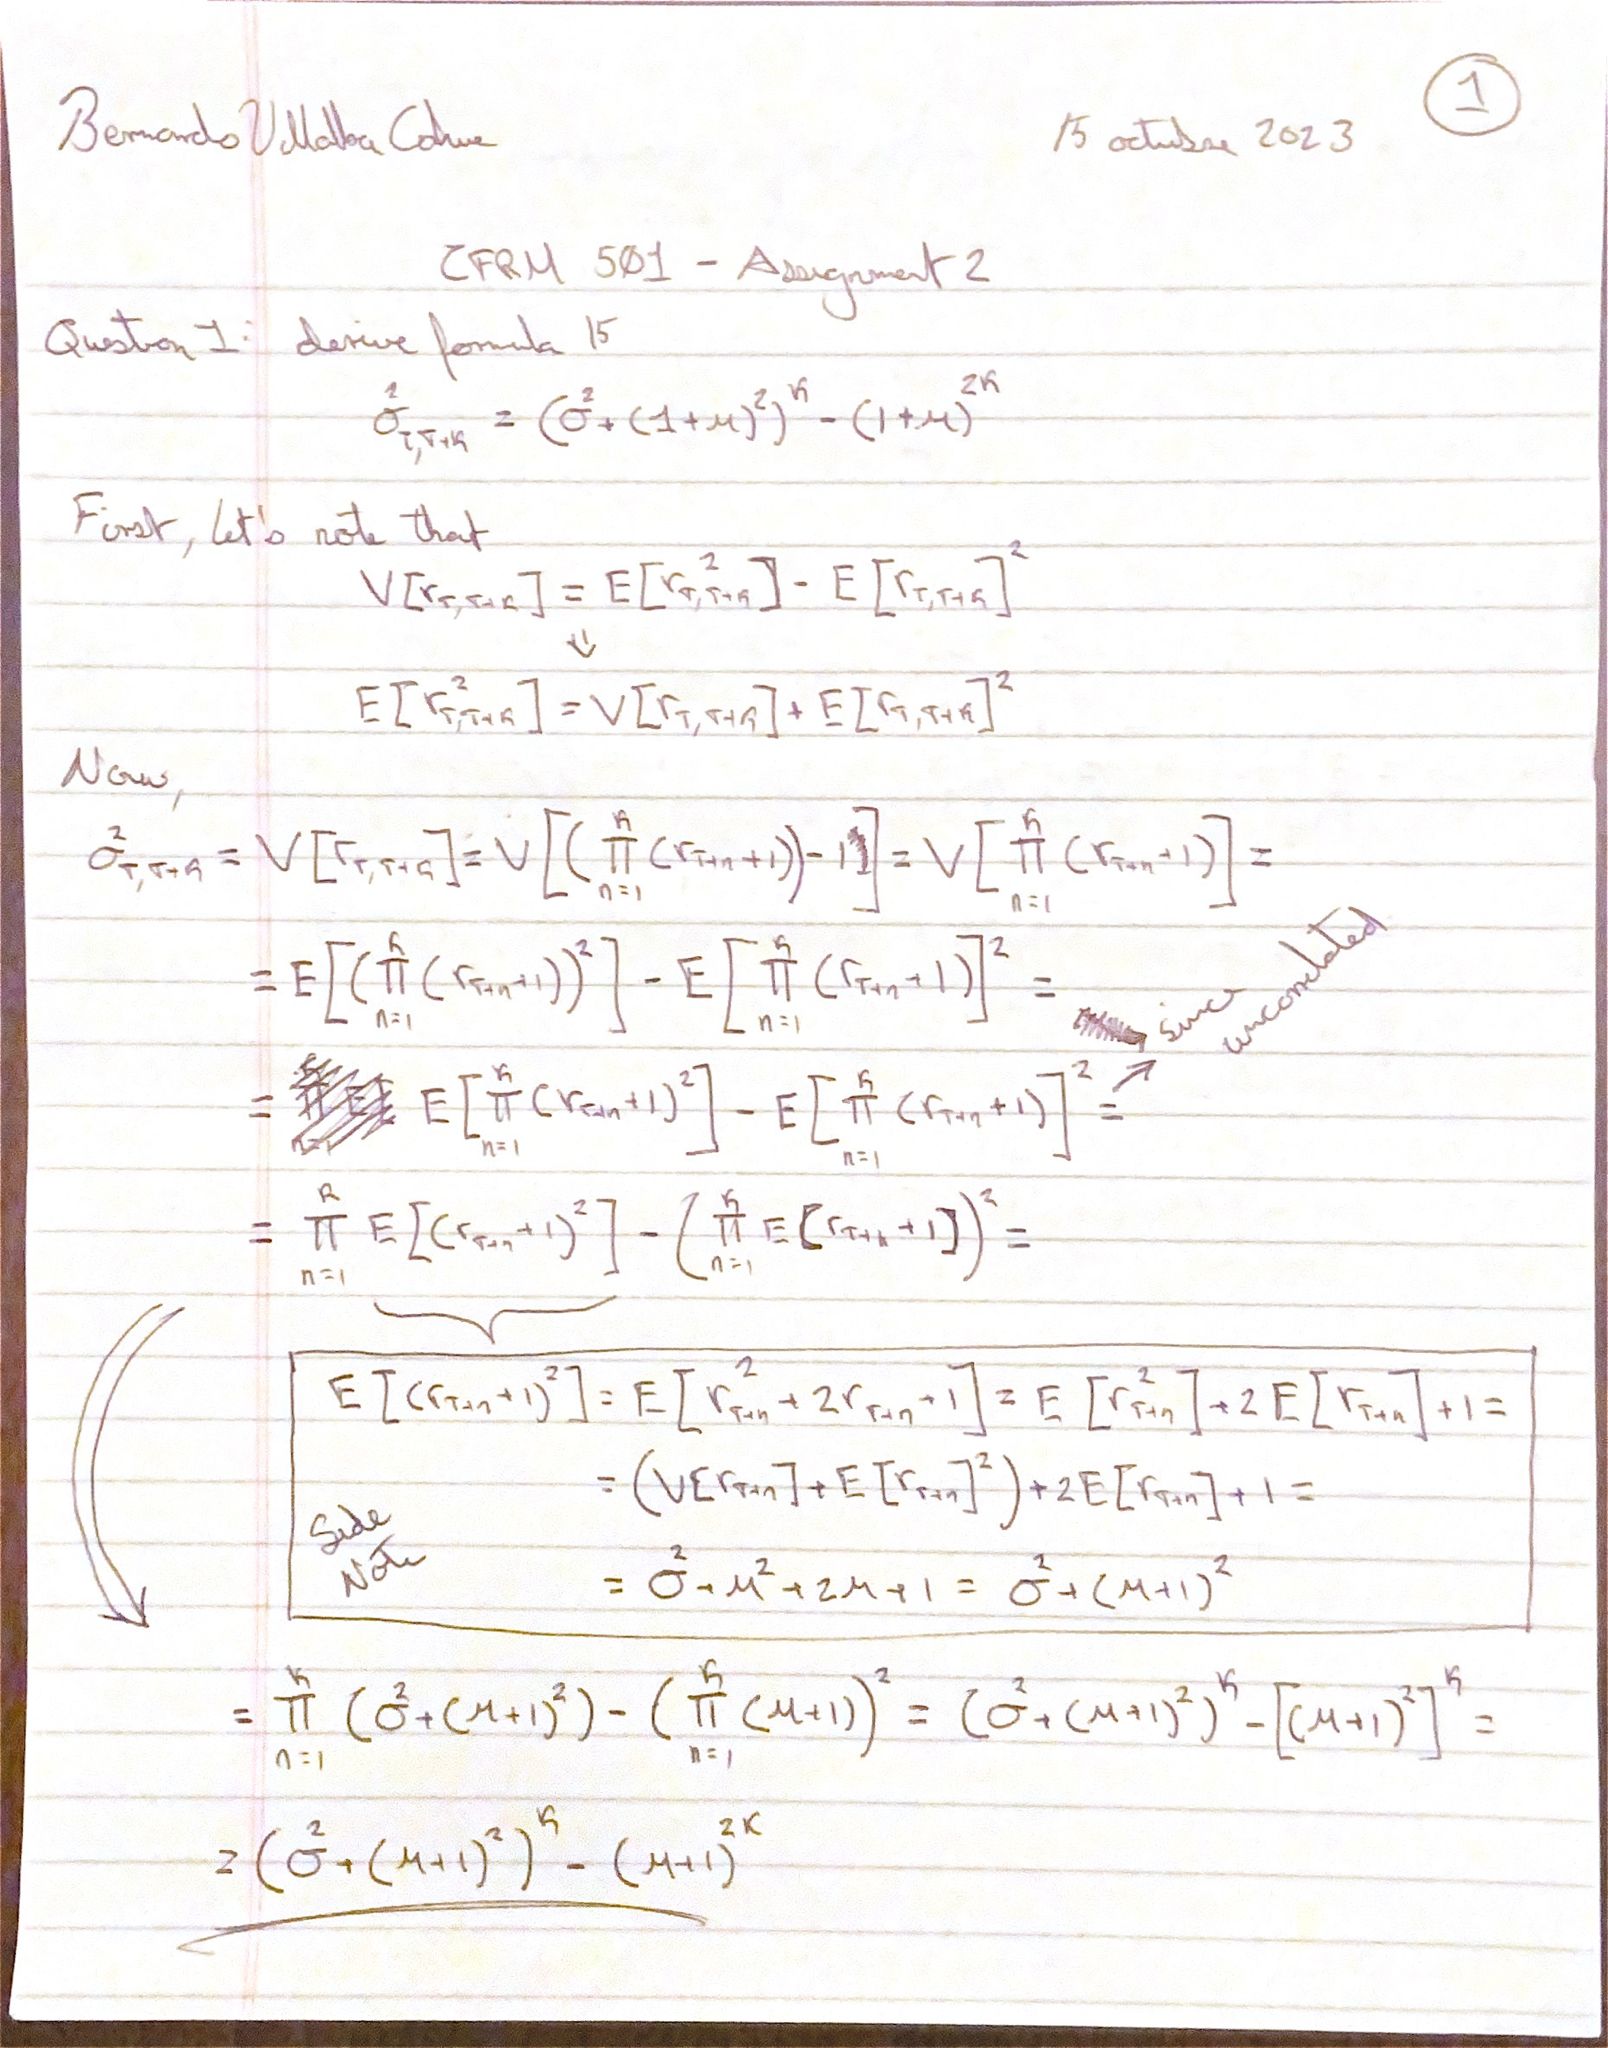 Bernardo Villalba Cohue 15 octubre 2023 1
CFRM 501 - Assignment 2
Question 1: derive formula 15
σ²_{T,T+K} = (σ² + (1+μ)²)^K - (1+μ)^{2K}
First, let's note that
V[r_{T,T+K}] = E[r²_{T,T+K}] - E[r_{T,T+K}]²
⇓
E[r²_{T,T+K}] = V[r_{T,T+K}] + E[r_{T,T+K}]²
Now,
σ²_{T,T+K} = V[r_{T,T+K}] = V[(∏_{n=1}^K (r_{T+n}+1)) - 1] = V[∏_{n=1}^K (r_{T+n}+1)] =
= E[(∏_{n=1}^K (r_{T+n}+1))²] - E[∏_{n=1}^K (r_{T+n}+1)]² =
since
uncorrelated
= E[∏_{n=1}^K (r_{T+n}+1)²] - E[∏_{n=1}^K (r_{T+n}+1)]² =
= ∏_{n=1}^K E[(r_{T+n}+1)²] - (∏_{n=1}^K E[r_{T+n}+1])² =
E[(r_{T+n}+1)²] = E[r²_{T+n} + 2r_{T+n} + 1] = E[r²_{T+n}] + 2E[r_{T+n}] + 1 =
= (V[r_{T+n}] + E[r_{T+n}]²) + 2E[r_{T+n}] + 1 =
Side
Note
= σ² + μ² + 2μ + 1 = σ² + (μ+1)²
= ∏_{n=1}^K (σ² + (μ+1)²) - (∏_{n=1}^K (μ+1))² = (σ² + (μ+1)²)^K - [(μ+1)²]^K =
= (σ² + (μ+1)²)^K - (μ+1)^{2K}